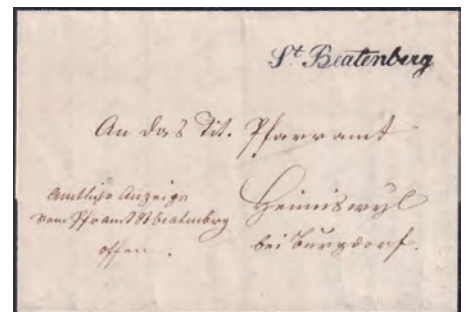 St. Beatenberg
An das Tit. Pfarramt
Heimiswyl
bei Burgdorf.
Amtliche Anzeige
vom Pframt St Beatenberg
offen.